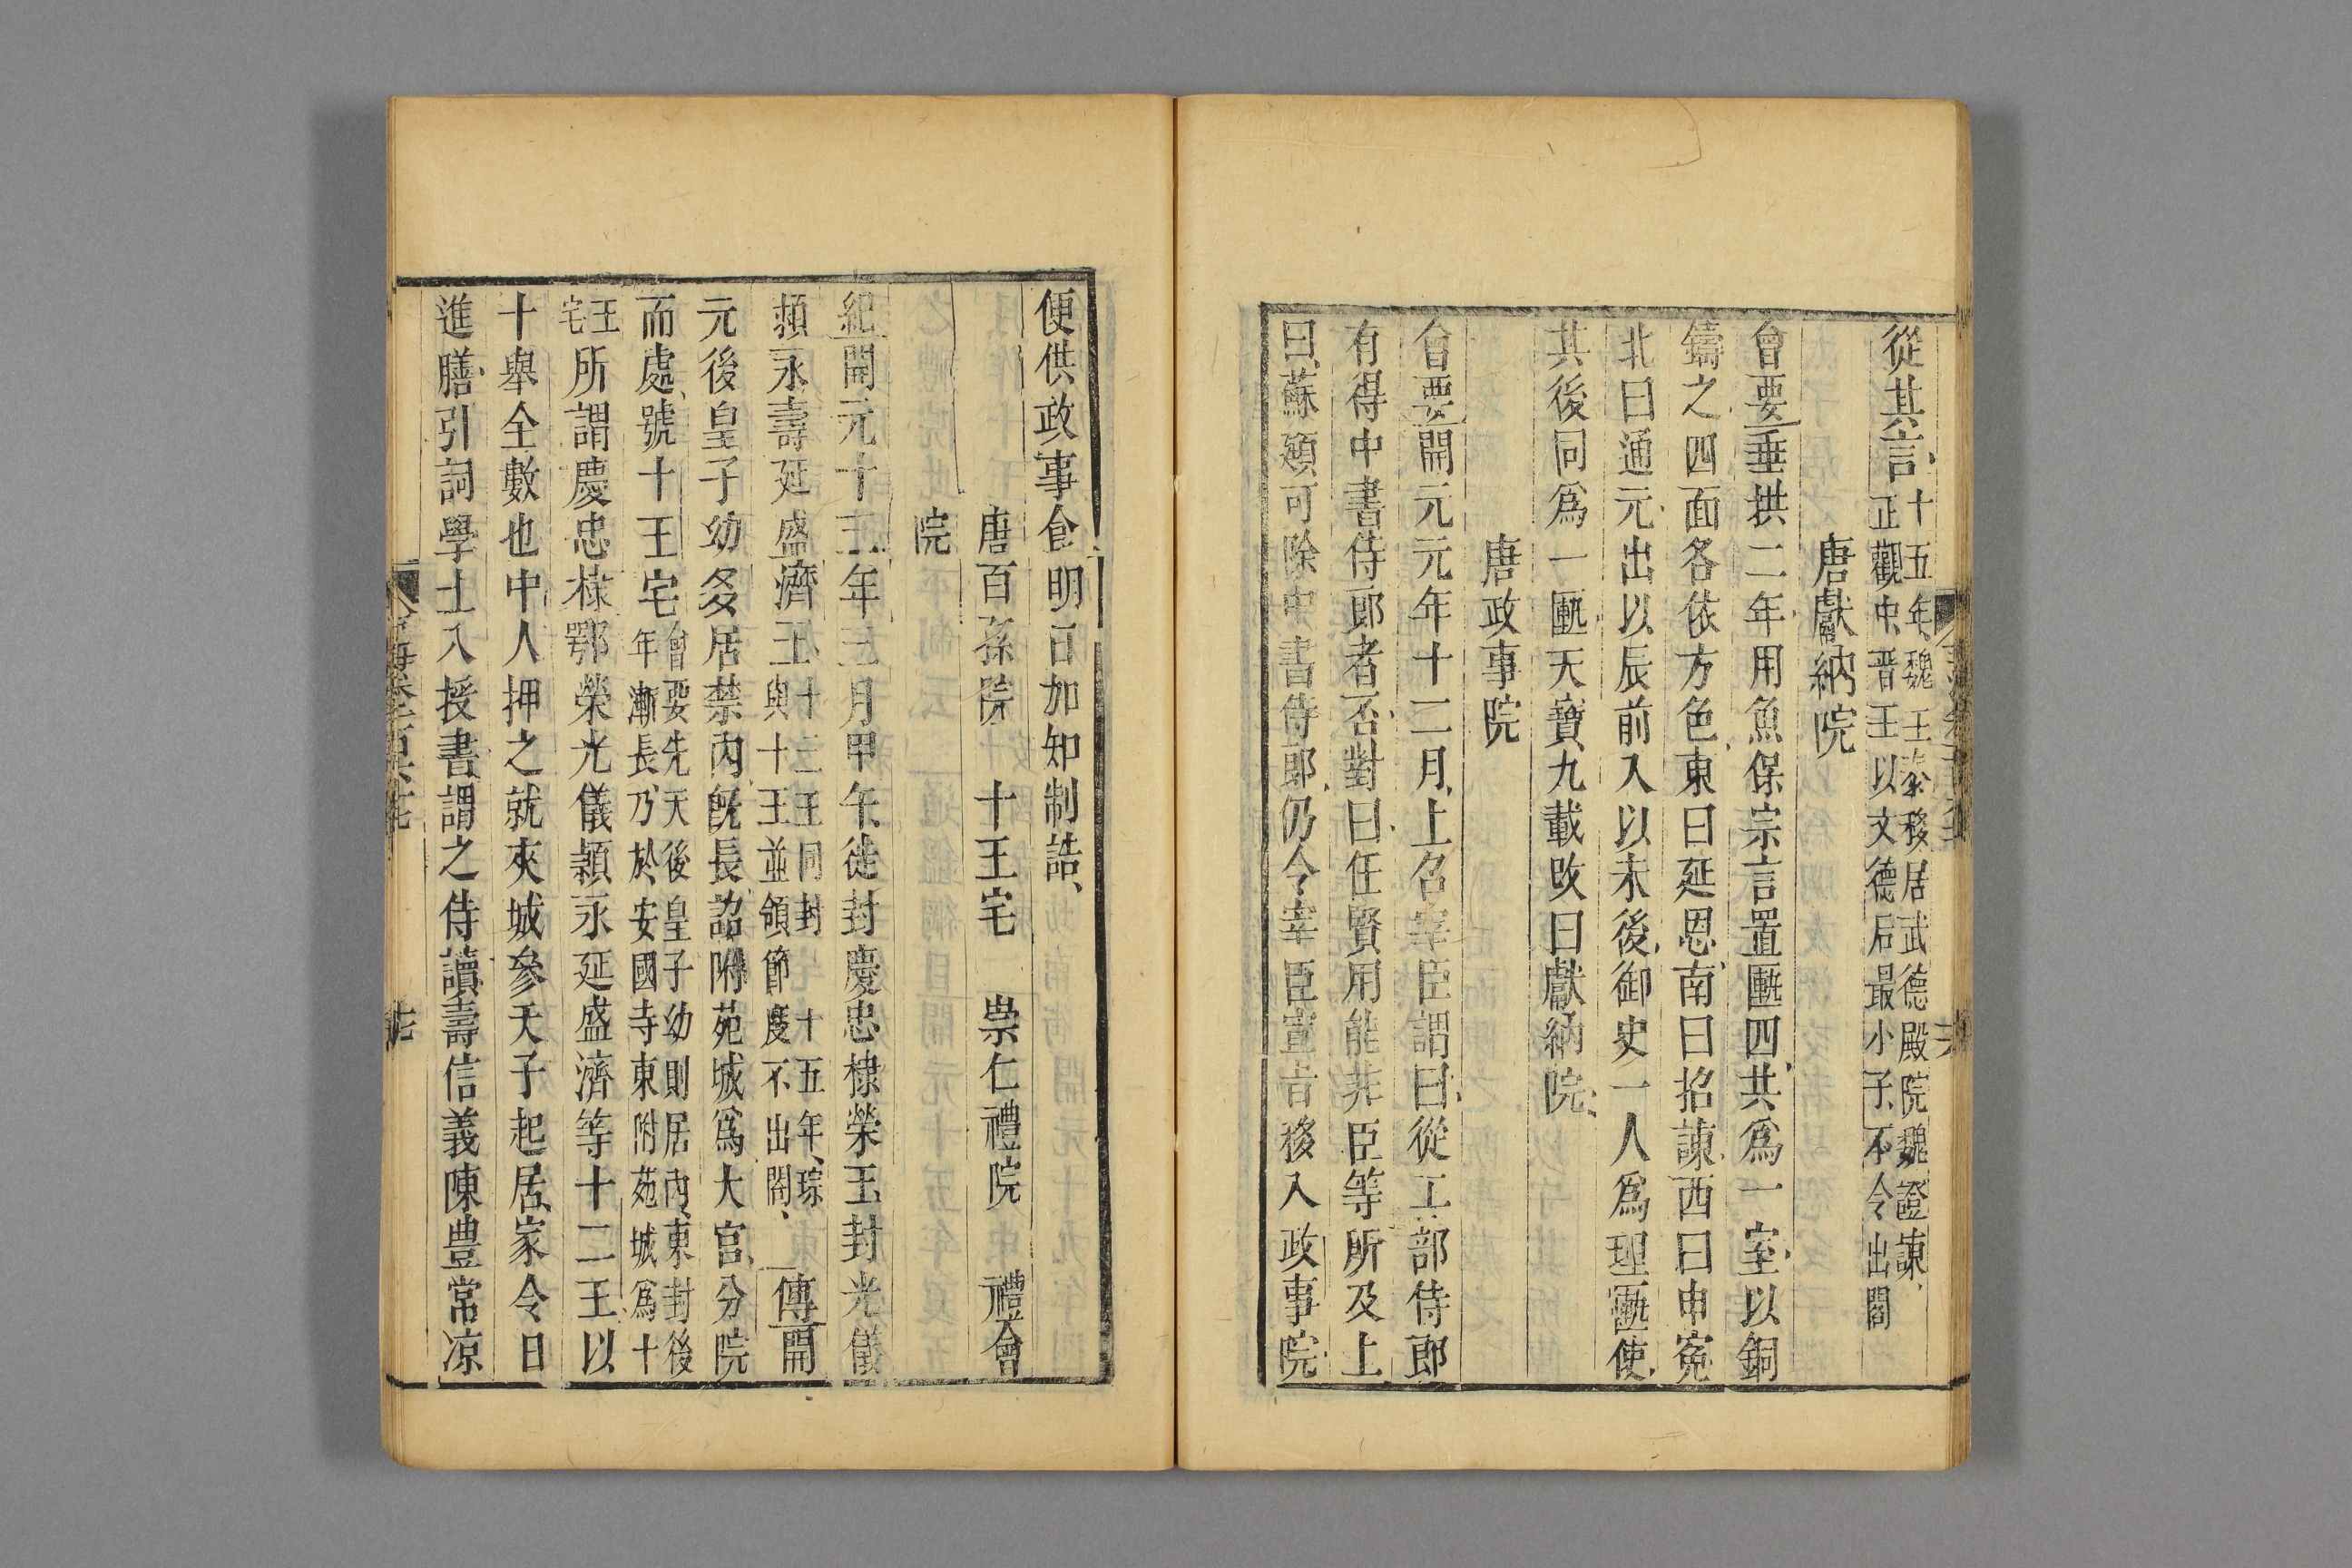 從其言十五年魏王泰移居武德殿院魏證諫正觀中晋王以文德后最小子不令出閤
唐獻納院
會要垂拱二年用魚保宗言置匭四共爲一室以銅
鑄之四面各依方色東曰延恩南曰招諫西曰申寃
北曰通元出以辰前入以未後御史一人爲理匭使
其後同爲一匭天寶九載改曰獻納院
唐政事院
會要開元元年十二月上召宰臣謂曰從工部侍郎
有得中書侍郎者否對曰任賢用能非臣等所及上
曰蘇頲可除中書侍郎仍令宰臣宣旨移入政事院
便供政事食明日加知制誥
唐百孫院 十王宅 崇仁禮院 禮會
院
紀開元十三年三月甲午徙封慶忠棣榮王封光儀
頻永壽延盛濟王十三王同封與十王並領節度 十五年琮不出閤 傳開
元後皇子幼多居禁內旣長詔附苑城爲大宮分院
而處號十王宅會要先天後皇子幼則居內東封後年漸長乃於安國寺東附苑城爲十
王宅所謂慶忠棣鄂榮光儀潁永延盛濟等十二王以
十舉全數也中人押之就夾城參天子起居家令日
進膳引詞學士入授書謂之侍讀壽信義陳豊常凉